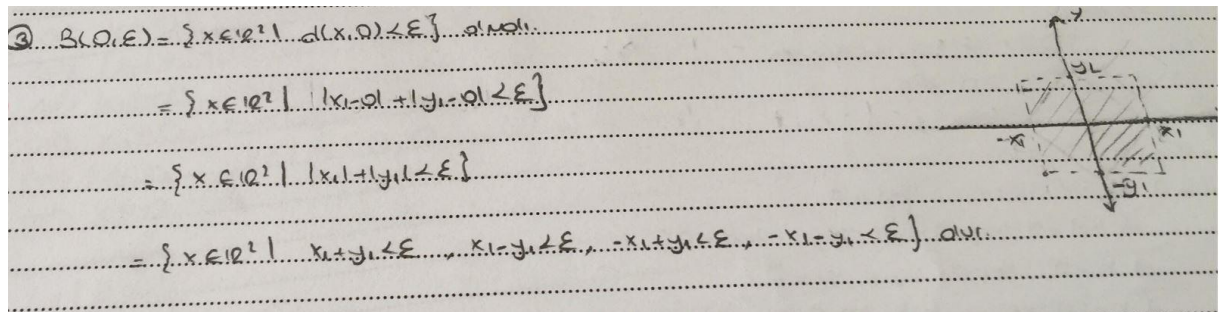 ③ B(0,ε) = {x∈ℝ² | d(x,0)<ε} olmalı.
= {x∈ℝ² | |x₁-0|+|y₁-0|<ε}
= {x∈ℝ² | |x₁|+|y₁|<ε}
= {x∈ℝ² | x₁+y₁<ε, x₁-y₁<ε, -x₁+y₁<ε, -x₁-y₁<ε} olur.
y
y₁
-x₁
x₁
-y₁